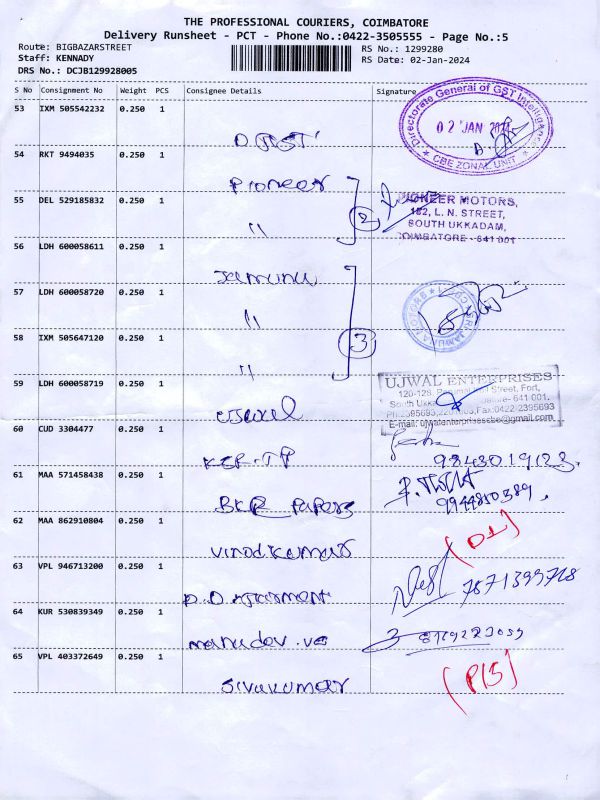 THE PROFESSIONAL COURIERS, COIMBATORE
Delivery Runsheet - PCT - Phone No.:0422-3505555 - Page No.:5
Route: BIGBAZARSTREET
RS No.: 1299280
Staff: KENNADY
RS Date: 02-Jan-2024
DRS No.: DCJB129928005
S No Consignment No Weight PCS Consignee Details Signature
53 IXM 505542232 0.250 1
Directorate General of GST Intelligence
02 JAN 2024
CBE ZONAL UNIT
54 RKT 9494035 0.250 1
Pioneer
55 DEL 529185832 0.250 1
"
2
PIONEER MOTORS,
182, L. N. STREET,
SOUTH UKKADAM,
COIMBATORE - 641 001
56 LDH 600058611 0.250 1
Jamuna
57 LDH 600058720 0.250 1
"
58 IXM 505647120 0.250 1
"
3
59 LDH 600058719 0.250 1
UJWAL ENTERPRISES
Street, Fort,
641 001.
Fax:0422-2395693
E-mail: ujwalenterprisescbe@gmail.com
60 CUD 3304477 0.250 1
9843019123
61 MAA 571458438 0.250 1
BKR Papers
9944850389
62 MAA 862910804 0.250 1
Vinodkumar
(DL)
63 VPL 946713200 0.250 1
7871399728
64 KUR 530839349 0.250 1
manudev.vs
65 VPL 403372649 0.250 1
Sivakumar
(P15)